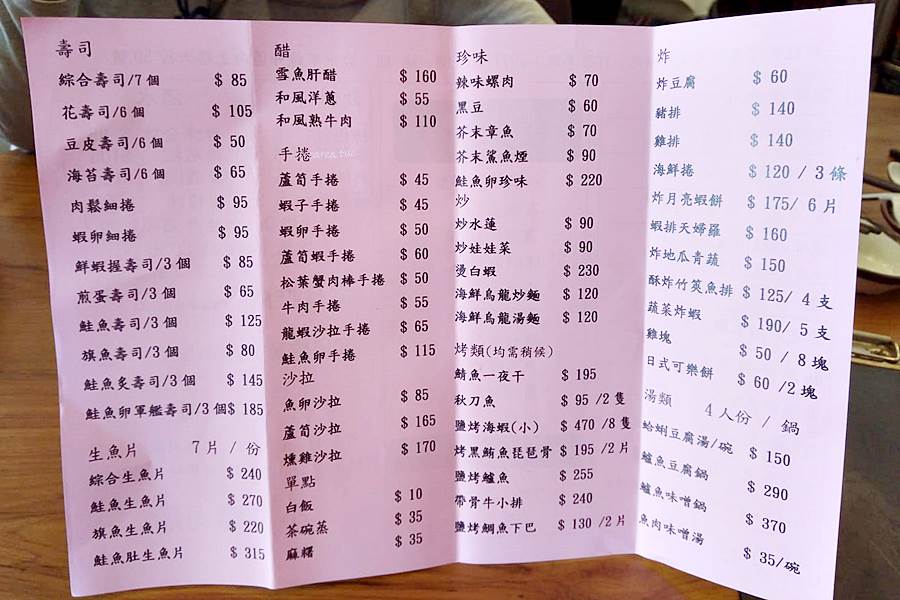 壽司
綜合壽司/7個 $ 85
花壽司/6個 $ 105
豆皮壽司/6個 $ 50
海苔壽司/6個 $ 65
肉鬆細捲 $ 95
蝦卵細捲 $ 95
鮮蝦握壽司/3個 $ 85
煎蛋壽司/3個 $ 65
鮭魚壽司/3個 $ 125
旗魚壽司/3個 $ 80
鮭魚炙壽司/3個 $ 145
鮭魚卵軍艦壽司/3個 $ 185
生魚片 7片 / 份
綜合生魚片 $ 240
鮭魚生魚片 $ 270
旗魚生魚片 $ 220
鮭魚肚生魚片 $ 315
醋
雪魚肝醋 $ 160
和風洋蔥 $ 55
和風熟牛肉 $ 110
手捲
蘆筍手捲 $ 45
蝦子手捲 $ 45
蝦卵手捲 $ 50
蘆筍蝦手捲 $ 60
松葉蟹肉棒手捲 $ 50
牛肉手捲 $ 55
龍蝦沙拉手捲 $ 65
鮭魚卵手捲 $ 115
沙拉
魚卵沙拉 $ 85
蘆筍沙拉 $ 165
燻雞沙拉 $ 170
單點
白飯 $ 10
茶碗蒸 $ 35
麻糬 $ 35
珍味
辣味螺肉 $ 70
黑豆 $ 60
芥末章魚 $ 70
芥末鯊魚煙 $ 90
鮭魚卵珍味 $ 220
炒
炒水蓮 $ 90
炒娃娃菜 $ 90
燙白蝦 $ 230
海鮮烏龍炒麵 $ 120
海鮮烏龍湯麵 $ 120
烤類(均需稍候)
鯖魚一夜干 $ 195
秋刀魚 $ 95 /2 隻
鹽烤海蝦(小) $ 470 /8 隻
烤黑鮪魚琵琶骨 $ 195 /2 片
鹽烤鱸魚 $ 255
帶骨牛小排 $ 240
鹽烤鯛魚下巴 $ 130 /2 片
炸
炸豆腐 $ 60
豬排 $ 140
雞排 $ 140
海鮮捲 $ 120 / 3 條
炸月亮蝦餅 $ 175/ 6 片
蝦排天婦羅 $ 160
炸地瓜青蔬 $ 150
酥炸竹筴魚排 $ 125/ 4 支
蔬菜炸蝦 $ 190/ 5 支
雞塊 $ 50 / 8 塊
日式可樂餅 $ 60 /2 塊
湯類 4 人份 / 鍋
蛤蜊豆腐湯/碗 $ 150
鱸魚豆腐鍋 $ 290
鱸魚味噌鍋 $ 370
魚肉味噌湯 $ 35/碗